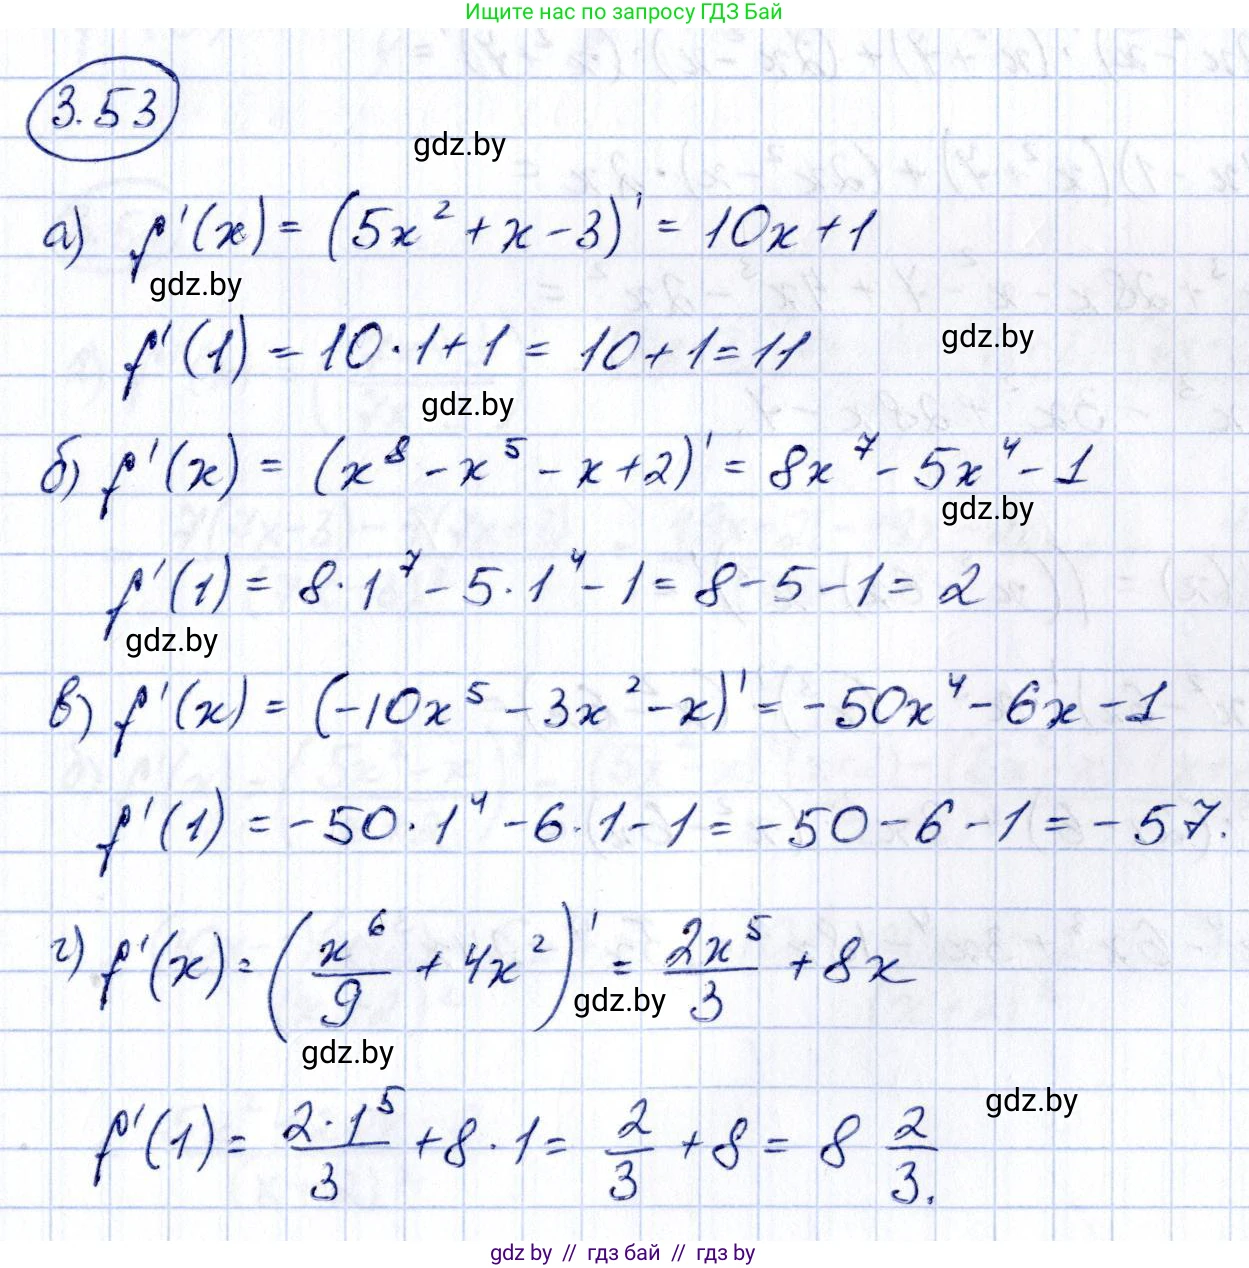 Ищите нас по запросу ГДЗ Бай
3.53
gdz.by
а) f'(x) = (5x² + x - 3)' = 10x + 1
gdz.by
f'(1) = 10·1 + 1 = 10 + 1 = 11
gdz.by
gdz.by
б) f'(x) = (x⁸ - x⁵ - x + 2)' = 8x⁷ - 5x⁴ - 1
gdz.by
f'(1) = 8·1⁷ - 5·1⁴ - 1 = 8 - 5 - 1 = 2
gdz.by
в) f'(x) = (-10x⁵ - 3x² - x)' = -50x⁴ - 6x - 1
f'(1) = -50·1⁴ - 6·1 - 1 = -50 - 6 - 1 = -57.
г) f'(x) = (x⁶/9 + 4x²)' = 2x⁵/3 + 8x
gdz.by
gdz.by
gdz.by
f'(1) = 2·1⁵/3 + 8·1 = 2/3 + 8 = 8 2/3.
gdz by // гдз бай // гдз by